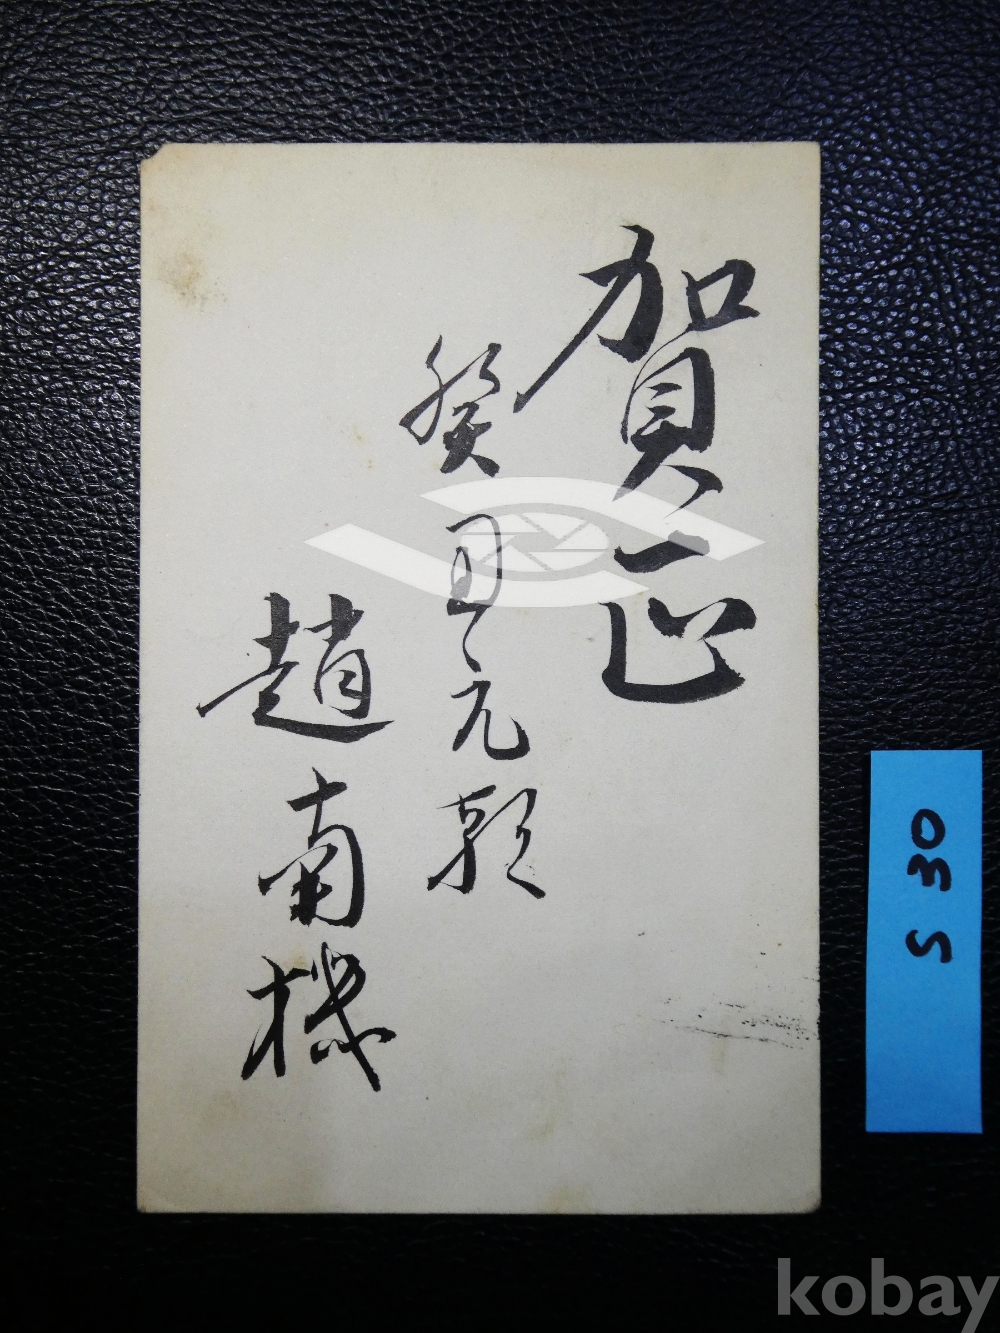 賀正
癸丑元朝
趙南機
S 30
kobay